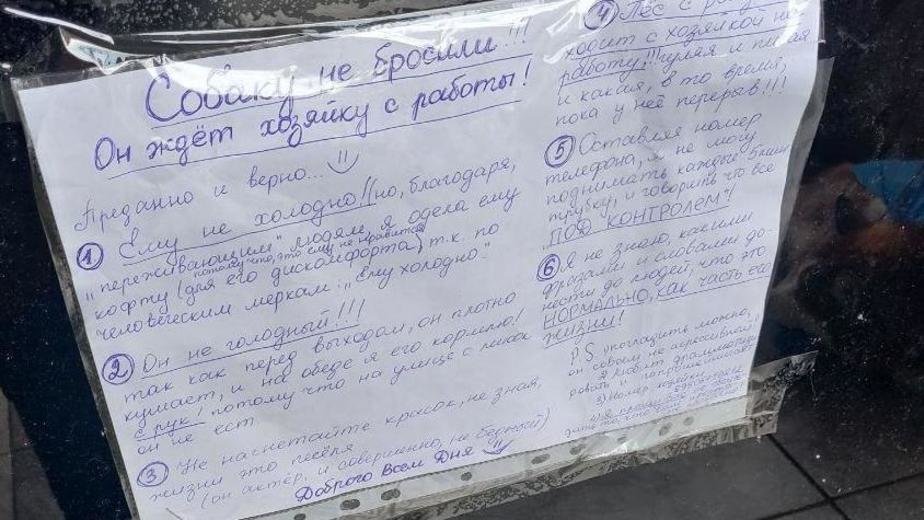 Собаку не бросили!!!
Он ждёт хозяйку с работы!
Преданно и верно...
① Ему не холодно!! но, благодаря,
"переживающим" людям, я одела ему
потому что, это ему не нравится
кофту (для его дискомфорта) т.к. по
человеческим меркам: "Ему холодно".
② Он не голодный!!!
так как перед выходом, он плотно
кушает, и на обеде я его кормлю!
с рук! потому что на улице с миски
он не ест
③ Не нагнетайте красок, не зная,
жизни это пёселя.
(он актёр, и совершенно, не бедный)
Доброго Всем Дня
④ Пёс с
ходит с хозяйкой на
работу!!! гуляя и писая
и какая, в то время,
пока у неё перерыв!!!
⑤ Оставляя номер
телефона, я не могу
поднимать каждые 5 мин
трубку, и говорить что все
"ПОД КОНТРОЛЕМ"!
⑥ Я не знаю, какими
фразами и словами до-
нести до людей, что это
НОРМАЛЬНО, как часть его
жизни!
P.S. погладить можно,
он совсем не агрессивный!
Любит драмматизи-
ровать и